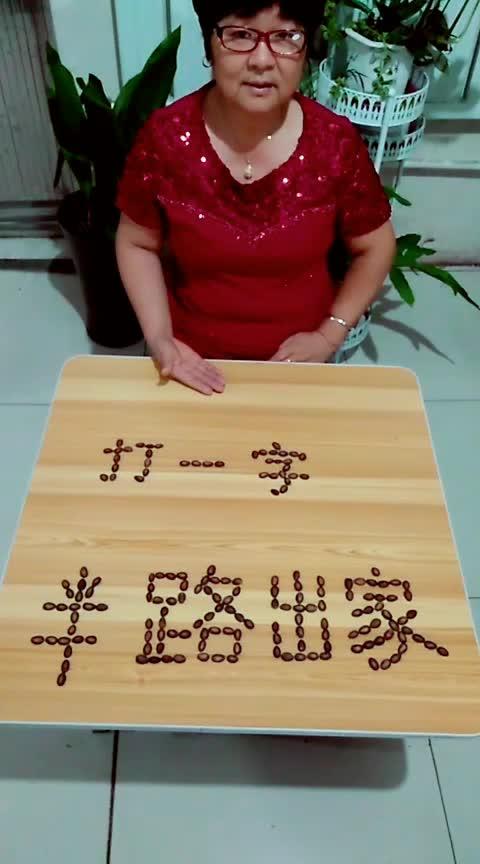 打一字
半路出家